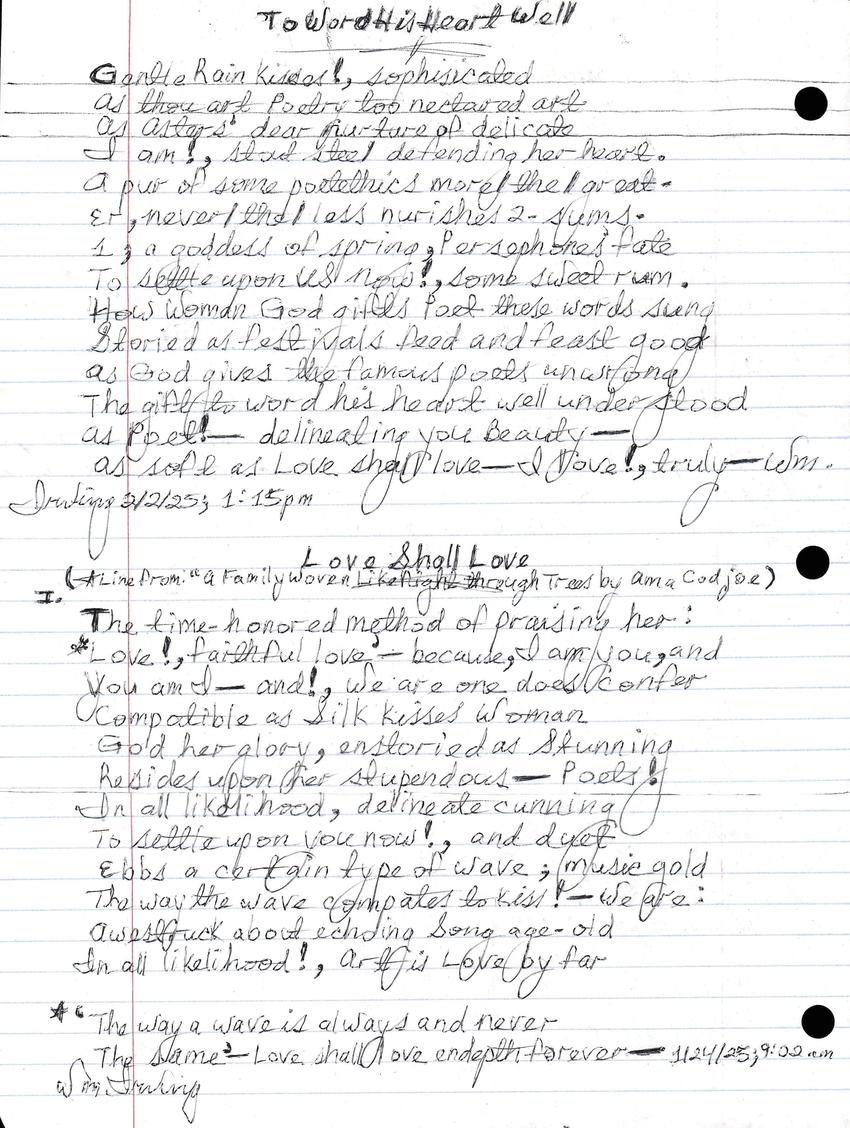 To Word His Heart Well
Gentle Rain Kisses!, sophisicated
As thou art Poetry too nectared art
As Asters' dear nurture of delicate
I am!, stout steel defending her heart.
A pur of some poetethics more/the/great-
Er, never/the/less nurishes 2-sums.
1; a goddess of spring, Persephones' fate
To settle upon us now!, some sweet rum.
How Woman God gifts Poet these words sung
Storied as festivals feed and feast good
As God gives the famous poets unwrong
The gift to word his heart well understood
As Poet!— delineating you Beauty—
As soft as Love shall love—I love!, truly—Wm.
Irwting 2/2/25; 1:15pm
Love Shall Love
(*A Line From: "A Family Woven Like Night through Trees by Ama Codjoe)
I.
The time-honored method of praising her:
*Love!, faithful love'— because, I am you, and
You am I— and!, we are one does confer
Compatible as Silk Kisses Woman
Gold her glory, enstoried as Stunning
Resides upon her stupendous— Poets!
In all likelihood, delineate cunning
To settle upon you now!, and duet
Ebbs a certain type of wave; music gold
The way the wave compates to kiss!—We are:
Awestruck about echoing Song age-old
In all likelihood!, Art is Love by far
*'The way a wave is always and never
The same'—Love shall love endepth forever— 1/24/25; 9:02 am
Wm.